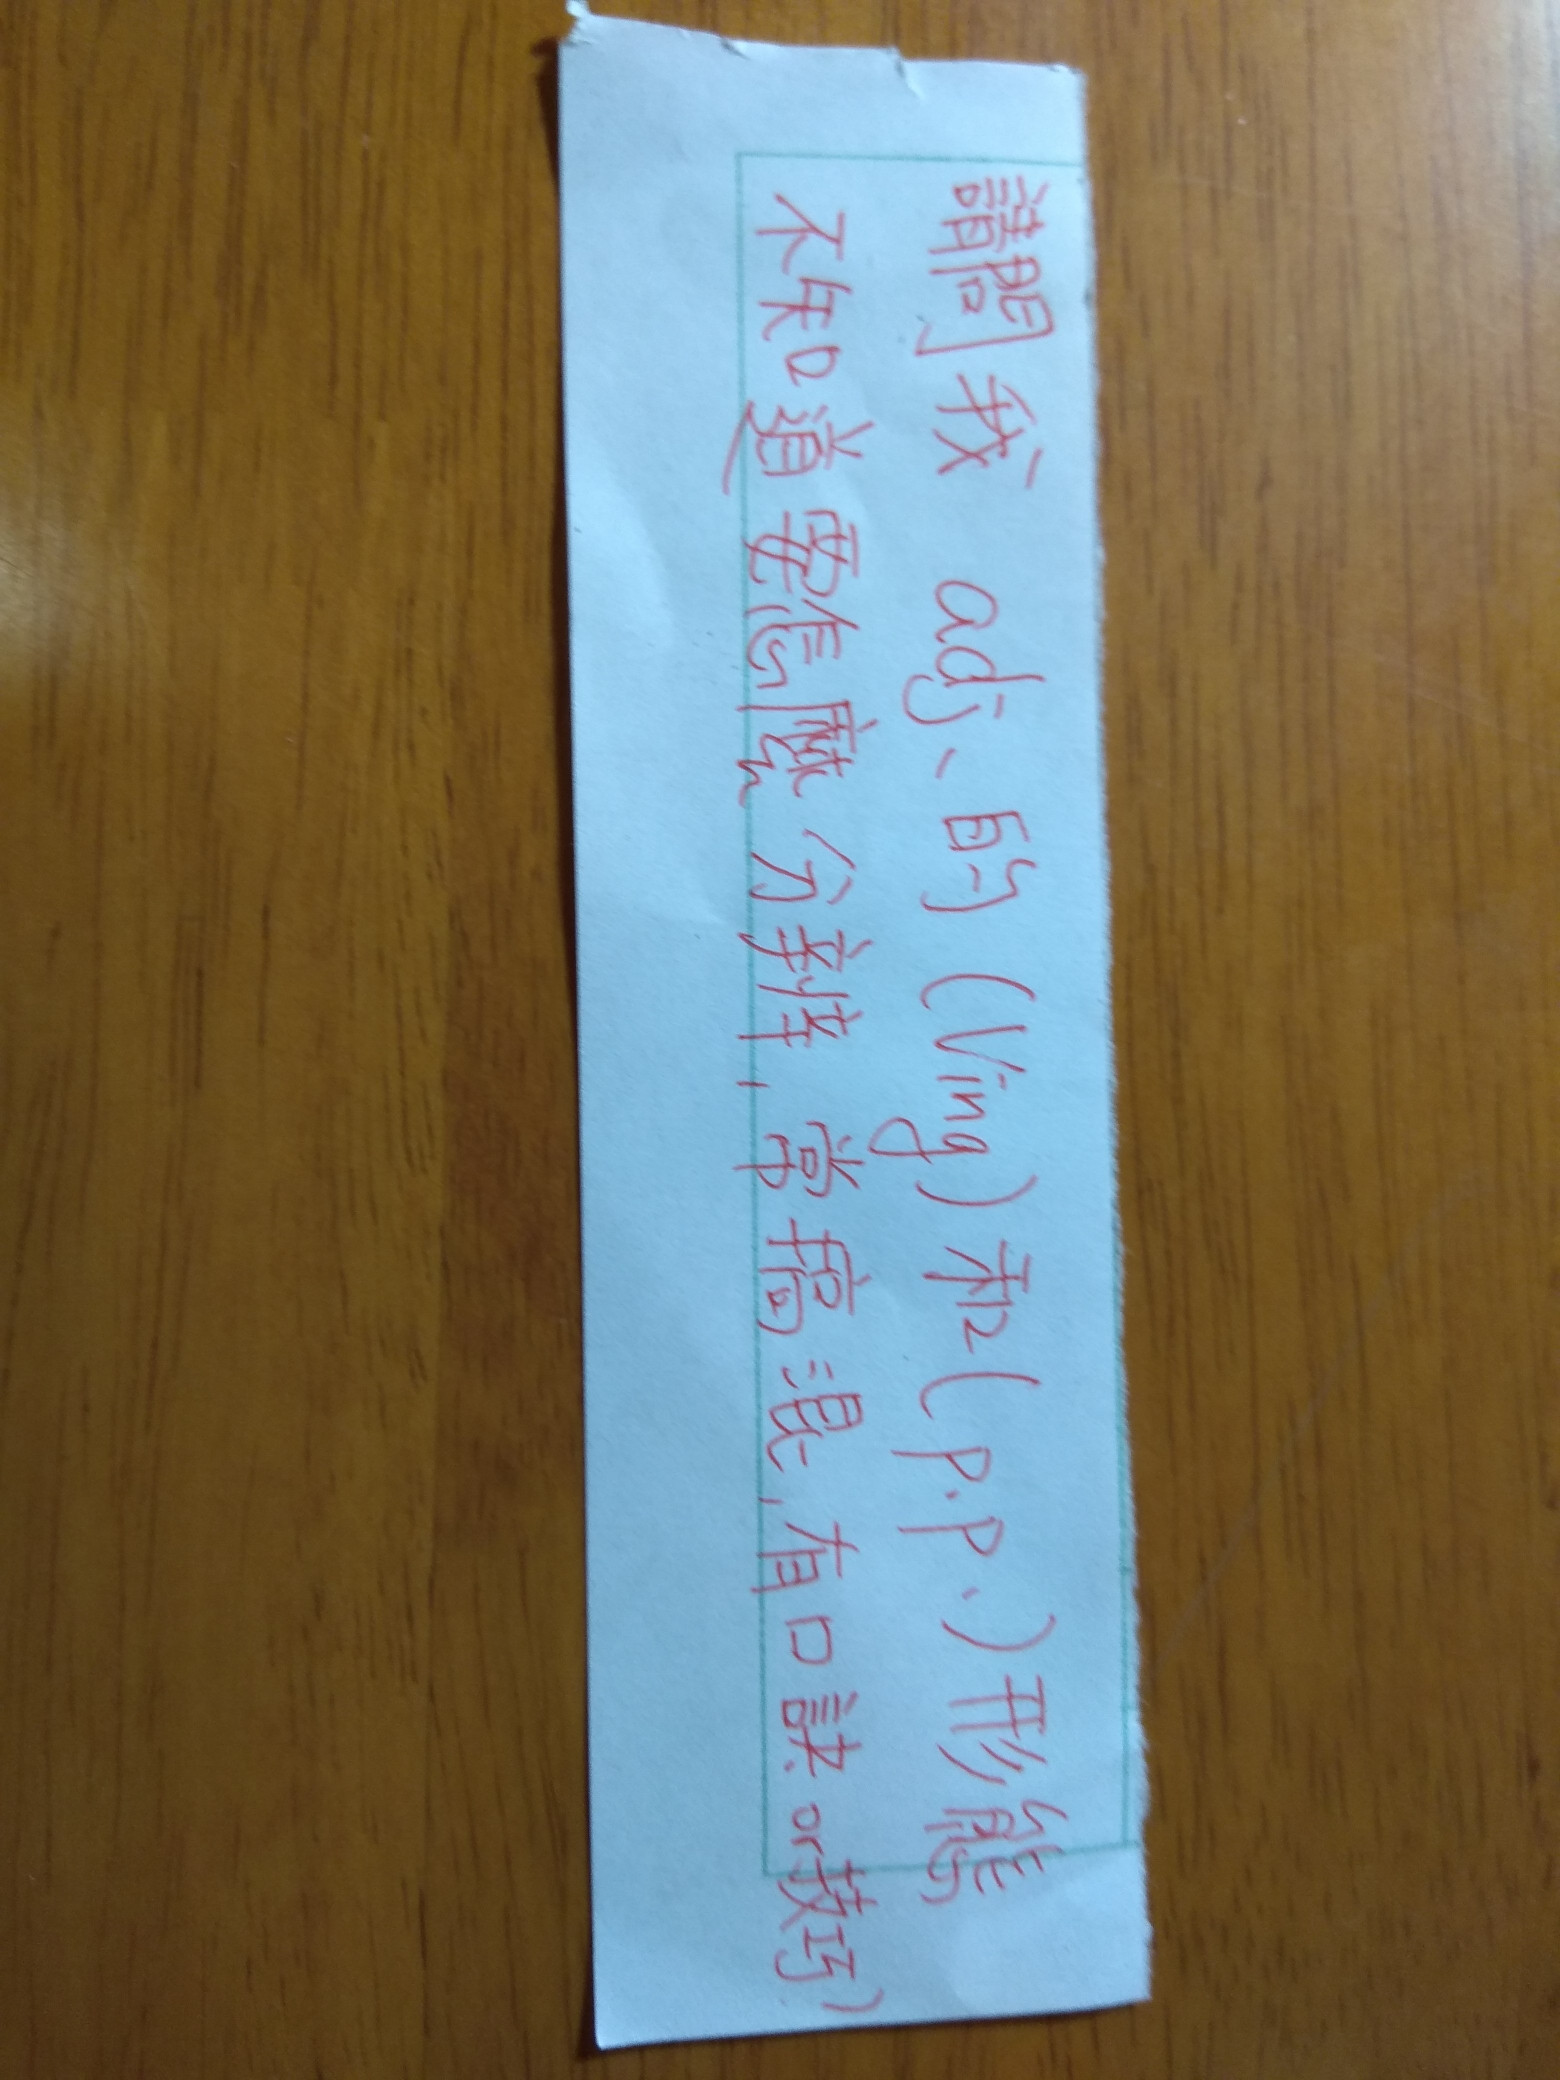 請問我 adj、的 (Ving) 和 (p.p.) 形態
不知道要怎麼分辨, 常搞混, 有口訣 or 技巧)